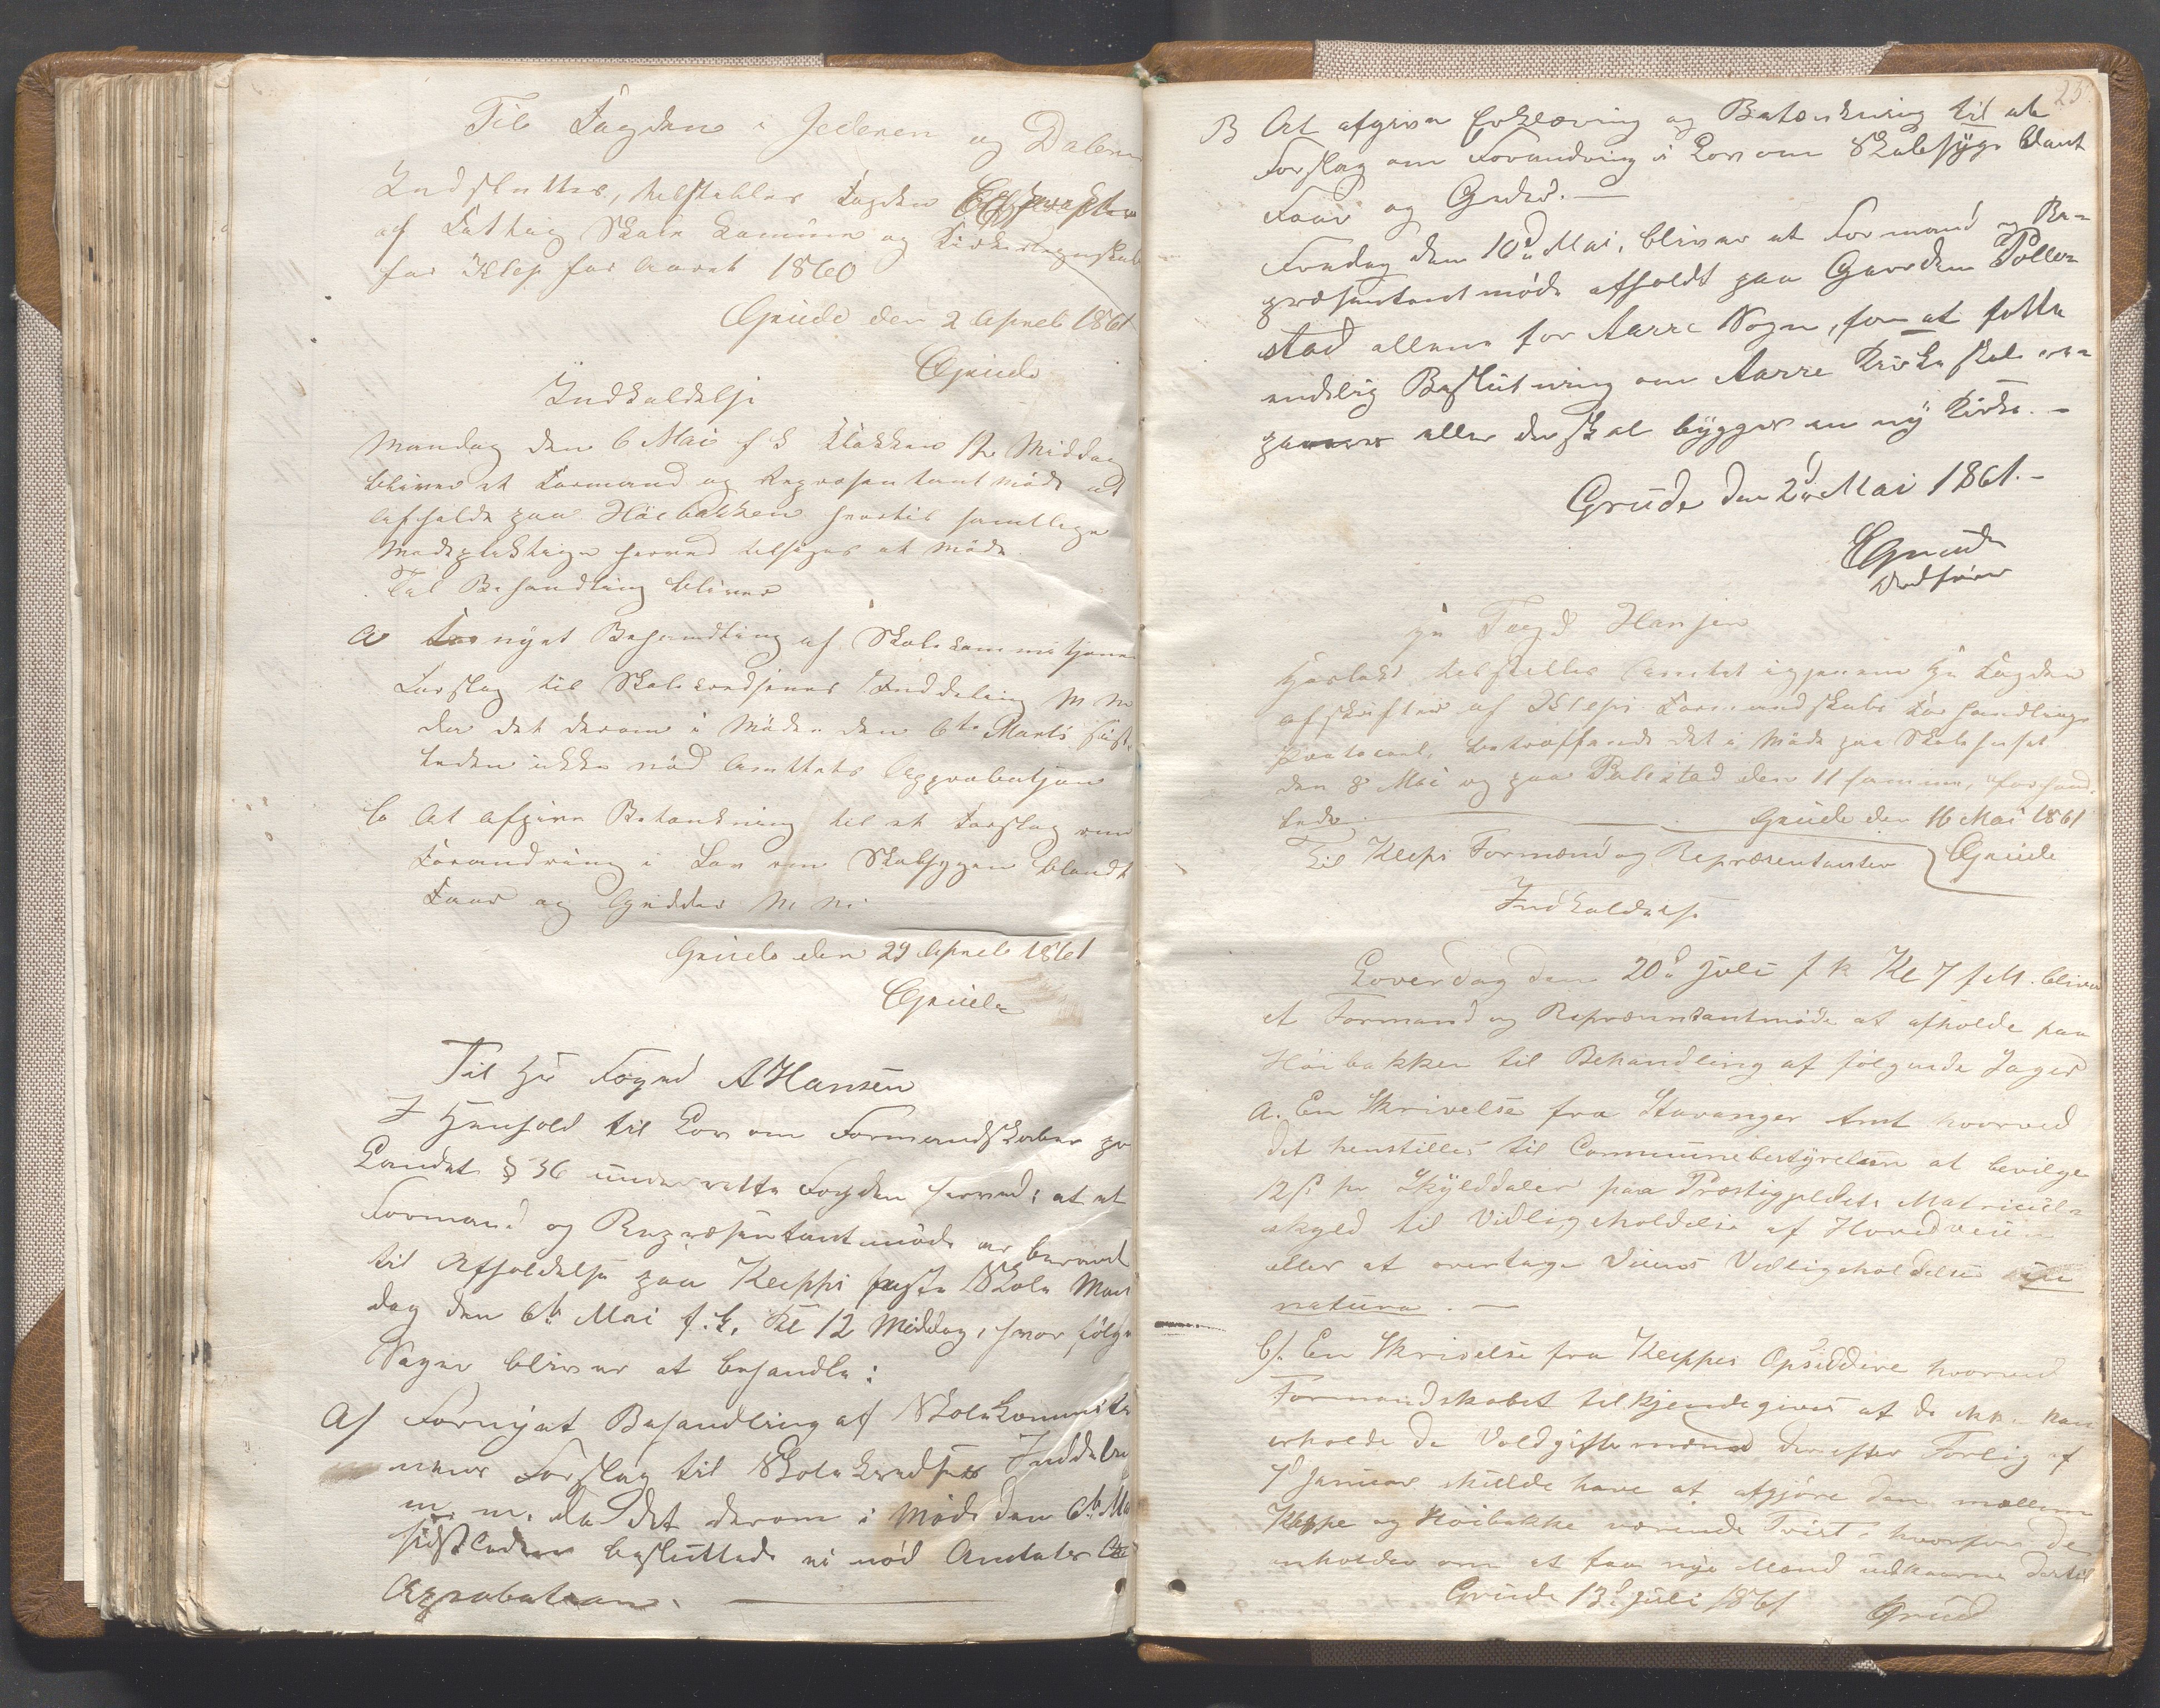 Til Fogden i Jederen og Dalerne
Indsluttes, tilstilles Fogden
af Fattig Skole Comune og Kirkeregnskab
for Klep for Aaret 1860
Grude den 2 April 1861
EGrude
Indkaldelse
Mandag den 6 Mai f k Klokken 12 Middag
bliver et Formand og Representantmöde at
afholde paa Höebakken hvortil samtlige
Mödepligtige herved tilsiges at möde.
Til Behandling bliver
a Fornyet Behandling af Skolekommitjonens
Forslag til Skolekredsenes Inddeling m m
da det derom i Möde den 6te Marts sidst
leden ikke nöd Amttets Approbatjon
b At afgive Betænkning til et Forslag om
Forandring i Lov om Skabsygen blandt
Faar og Gjedder m m.
Grude den 29 April 1861
EGrude
Til Hr Foged AHansen
I Henhold til Lov om Formandskaber paa
Landet § 36 underrettes Fogden herved, at et
Formand og Repræsentantmöde er berammet
til Afholdelse paa Kleppi faste Skole Man
dag den 6te Mai f. k. Kl 12 Middag, hvor fölgende
Sager bliver at behandle:
A) Fornyet Behandling af Skolekommite
nens Forslag til Skolekredsens Inddeling
m. m. da det derom i Möde den 6te Ma
sidstleden besluttede ei nöd Amtets
Approbation.
23
B At afgive Erklæring og Betænkning til et
Forslag om Forandring i Lov om Skabsyge blant
Faar og Geder. —
Fredag den 10d Mai, bliver et Formand og Re-
præsentantmöde afholdt paa Gaarden Polle-
stad allene for Aarre Sogn, for at fatte
endelig Beslutning om Aarre Kirke skal re-
pareres eller der skal bygges en ny Kirke. -
Grude den 2d Mai 1861.-
EGrude
Ordförer
Hr Fogd Hansen
Hoslagt tilstilles Amtet igjenem Hr Fogden
afskrifter af Kleps Formandskabs Forhandlings
Protocol, betræffende det i Möde paa Skolehuset
den 8 Mai og paa Polestad den 11 samme, forhand
lede. Grude den 16 Mai 1861
Til Kleps Formænd og Repræsentanter EGrude
Indkaldelse
Löverdag den 20d Juli f k Kl 7 f M. bliver
et Formand og Repræsentantmöde at afholde paa
Höibakken til Behandling af fölgende Sager
a. En Skrivelse fra Stavanger Amt hvorved
det henstilles til Communebestyrelsen at bevilge
12 s pr Skylddaler paa Præstigjeldets Matricul-
skyld til Vedligeholdelse af Hovedveien
eller at overtage Veiens Vedligeholdelse in
natura. —
b). En Skrivelse fra Kleppes Opsiddere hvorved
Formandskabet tilkjendegives at de ikke kan
erholde de Voldgiftsmænd der efter Forlig af
7d Januar skulde have at afgjöre den mellem
Kleppe og Höibakke værende Tvist, hvorfor de
anholder om at faa nye Mænd udkaarne dertil
Grude 13d Juli 1861 Grude